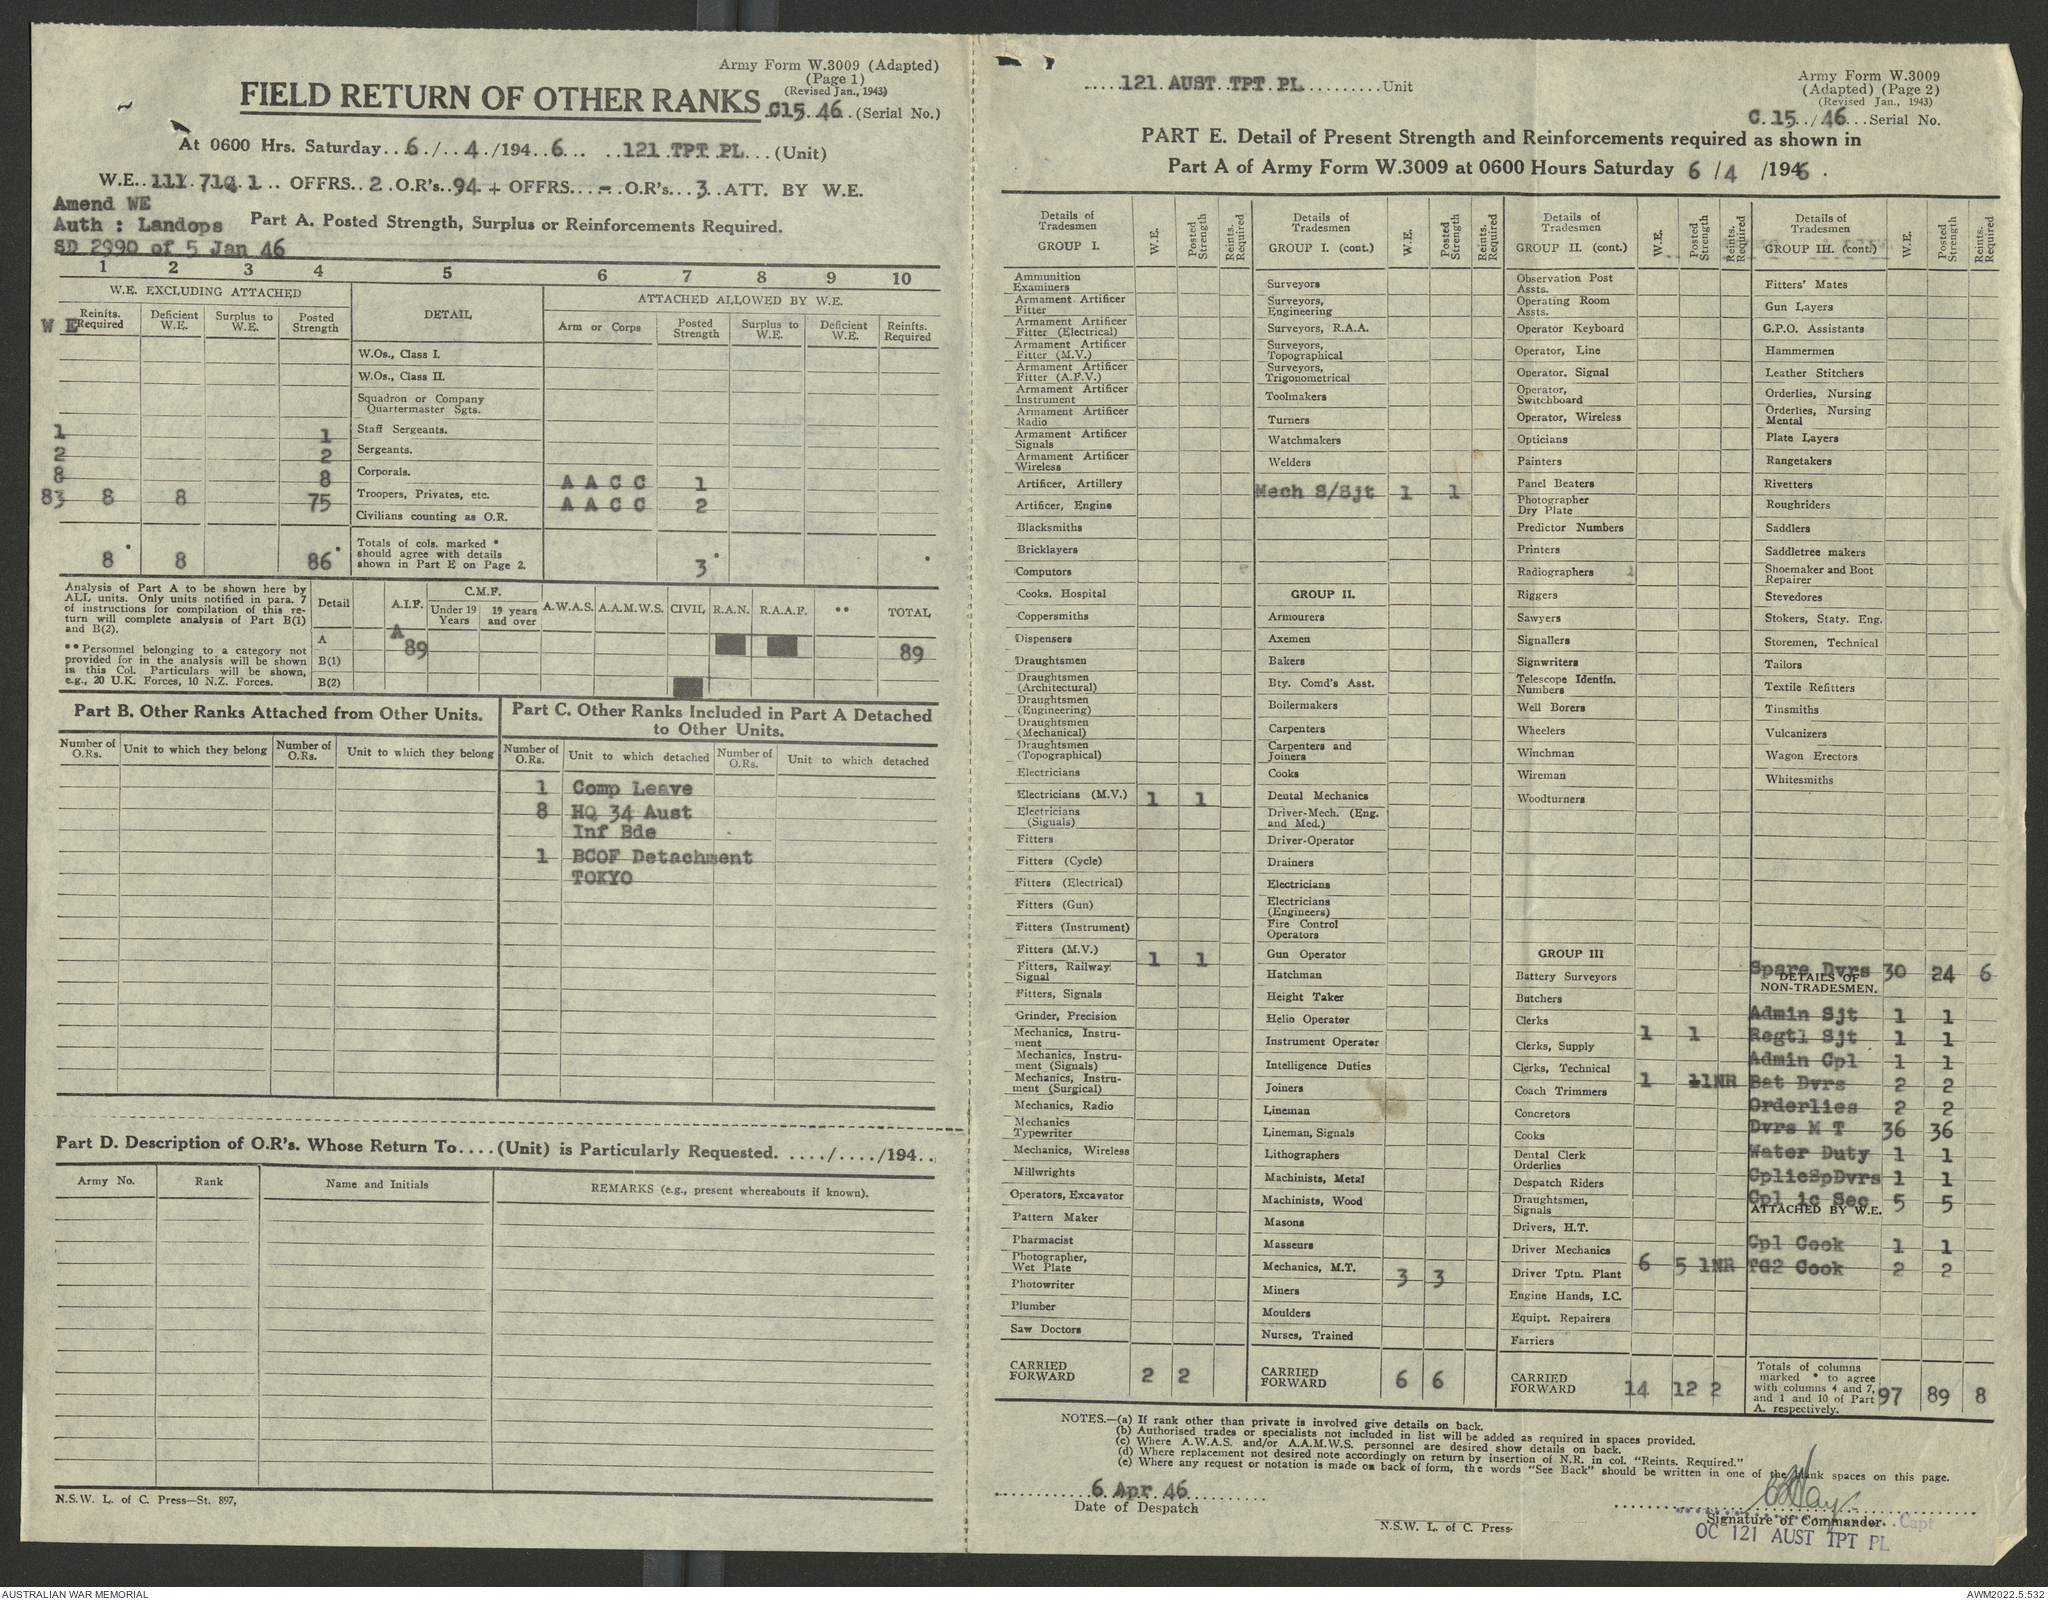 Army Form W.3009 (Adapted)
(Page 1)
(Revised Jan., 1943)
FIELD RETURN OF OTHER RANKS C15 46 (Serial No.)
At 0600 Hrs. Saturday 6 / 4 /194 6 121 TPT PL (Unit)
OFFRS. 2 O.R's. 94 + OFFRS. - O.R's. 3 ATT. BY W.E.
Amend WE
Auth : Landops Part A. Posted Strength, Surplus or Reinforcements Required.
SD 2990 of 5 Jan 46
1 2 3 4 5 6 7 8 9 10
W.E. EXCLUDING ATTACHED DETAIL ATTACHED ALLOWED BY W.E.
W E Reinfts. Required Deficient W.E. Surplus to W.E. Posted Strength Arm or Corps Posted Strength Surplus to W.E. Deficient W.E. Reinfts. Required
W.Os., Class I.
W.Os., Class II.
Squadron or Company
Quartermaster Sgts.
1 1 Staff Sergeants.
2 2 Sergeants.
8 8 Corporals. A A C C 1
83 8 8 75 Troopers, Privates, etc. A A C C 2
Civilians counting as O.R.
8 * 8 86 * Totals of cols. marked * should agree with details shown in Part E on Page 2. 3 * *
Analysis of Part A to be shown here by
ALL units. Only units notified in para. 7
of instructions for compilation of this re-
turn will complete analysis of Part B(1)
and B(2).
**Personnel belonging to a category not
provided for in the analysis will be shown
in this Col. Particulars will be shown,
e.g., 20 U.K. Forces, 10 N.Z. Forces.
Detail A.I.F. C.M.F. Under 19 Years 19 years and over A.W.A.S. A.A.M.W.S. CIVIL R.A.N. R.A.A.F. ** TOTAL
A A 89 89
B(1)
B(2)
Part B. Other Ranks Attached from Other Units.
Number of O.Rs. Unit to which they belong Number of O.Rs. Unit to which they belong
Part C. Other Ranks Included in Part A Detached
to Other Units.
Number of O.Rs. Unit to which detached Number of O.Rs. Unit to which detached
1 Comp Leave
8 HQ 34 Aust
Inf Bde
1 BCOF Detachment
TOKYO
Part D. Description of O.R's. Whose Return To....(Unit) is Particularly Requested. ..../..../194..
Army No. Rank Name and Initials REMARKS (e.g., present whereabouts if known).
N.S.W. L. of C. Press—St. 897,
121 AUST TPT PL Unit
Army Form W.3009
(Adapted) (Page 2)
(Revised Jan., 1943)
C.15 /46 Serial No.
PART E. Detail of Present Strength and Reinforcements required as shown in
Part A of Army Form W.3009 at 0600 Hours Saturday 6 /4 /1946.
Details of Tradesmen GROUP I. W.E. Posted Strength Reinfts. Required
Ammunition Examiners
Armament Artificer Fitter
Armament Artificer Fitter (Electrical)
Armament Artificer Fitter (M.V.)
Armament Artificer Fitter (A.F.V.)
Armament Artificer Instrument
Armament Artificer Radio
Armament Artificer Signals
Armament Artificer Wireless
Artificer, Artillery
Artificer, Engine
Blacksmiths
Bricklayers
Computors
Cooks, Hospital
Coppersmiths
Dispensers
Draughtsmen
Draughtsmen (Architectural)
Draughtsmen (Engineering)
Draughtsmen (Mechanical)
Draughtsmen (Topographical)
Electricians
Electricians (M.V.) 1 1
Electricians (Signals)
Fitters
Fitters (Cycle)
Fitters (Electrical)
Fitters (Gun)
Fitters (Instrument)
Fitters (M.V.) 1 1
Fitters, Railway Signal
Fitters, Signals
Grinder, Precision
Mechanics, Instru-
ment
Mechanics, Instru-
ment (Signals)
Mechanics, Instru-
ment (Surgical)
Mechanics, Radio
Mechanics Typewriter
Mechanics, Wireless
Millwrights
Operators, Excavator
Pattern Maker
Pharmacist
Photographer, Wet Plate
Photowriter
Plumber
Saw Doctors
CARRIED FORWARD 2 2
Details of Tradesmen GROUP I. (cont.) W.E. Posted Strength Reinfts. Required
Surveyors
Surveyors, Engineering
Surveyors, R.A.A.
Surveyors, Topographical
Surveyors, Trigonometrical
Toolmakers
Turners
Watchmakers
Welders
Mech S/Sjt 1 1
GROUP II.
Armourers
Axemen
Bakers
Bty. Comd's Asst.
Boilermakers
Carpenters
Carpenters and Joiners
Cooks
Dental Mechanics
Driver-Mech. (Eng. and Med.)
Driver-Operator
Drainers
Electricians
Electricians (Engineers)
Fire Control Operators
Gun Operator
Hatchman
Height Taker
Helio Operator
Instrument Operator
Intelligence Duties
Joiners
Lineman
Lineman, Signals
Lithographers
Machinists, Metal
Machinists, Wood
Masons
Masseurs
Mechanics, M.T. 3 3
Miners
Moulders
Nurses, Trained
CARRIED FORWARD 6 6
Details of Tradesmen GROUP II. (cont.) W.E. Posted Strength Reinfts. Required
Observation Post Assts.
Operating Room Assts.
Operator Keyboard
Operator, Line
Operator, Signal
Operator, Switchboard
Operator, Wireless
Opticians
Painters
Panel Beaters
Photographer Dry Plate
Predictor Numbers
Printers
Radiographers
Riggers
Sawyers
Signallers
Signwriters
Telescope Identfn. Numbers
Well Borers
Wheelers
Winchman
Wireman
Woodturners
GROUP III
Battery Surveyors
Butchers
Clerks 1 1
Clerks, Supply
Clerks, Technical 1 1 1NR
Coach Trimmers
Concretors
Cooks
Dental Clerk Orderlies
Despatch Riders
Draughtsmen, Signals
Drivers, H.T.
Driver Mechanics 6 5 1NR
Driver Tptn. Plant
Engine Hands, I.C.
Equipt. Repairers
Farriers
CARRIED FORWARD 14 12 2
Details of Tradesmen GROUP III. (cont.) W.E. Posted Strength Reints. Required
Fitters' Mates
Gun Layers
G.P.O. Assistants
Hammermen
Leather Stitchers
Orderlies, Nursing
Orderlies, Nursing Mental
Plate Layers
Rangetakers
Rivetters
Roughriders
Saddlers
Saddletree makers
Shoemaker and Boot Repairer
Stevedores
Stokers, Staty. Eng.
Storemen, Technical
Tailors
Textile Refitters
Tinsmiths
Vulcanizers
Wagon Erectors
Whitesmiths
Spare Dvrs 30 24 6
DETAILS OF
NON-TRADESMEN.
Admin Sjt 1 1
Regtl Sjt 1 1
Admin Cpl 1 1
Bat Dvrs 2 2
Orderlies 2 2
Dvrs M T 36 36
Water Duty 1 1
CplicSpDvrs 1 1
Cpl ic Sec 5 5
ATTACHED BY W.E.
Cpl Cook 1 1
TG2 Cook 2 2
Totals of columns marked * to agree with columns 4 and 7, and 1 and 10 of Part A. respectively. 97 89 8
NOTES.—(a) If rank other than private is involved give details on back.
(b) Authorised trades or specialists not included in list will be added as required in spaces provided.
(c) Where A.W.A.S. and/or A.A.M.W.S. personnel are desired show details on back.
(d) Where replacement not desired note accordingly on return by insertion of N.R. in col. "Reints. Required."
(e) Where any request or notation is made on back of form, the words "See Back" should be written in one of the blank spaces on this page.
6 Apr 46
Date of Despatch
Signature of Commander Capt
OC 121 AUST TPT PL
N.S.W. L. of C. Press.
AUSTRALIAN WAR MEMORIAL
AWM2022.5.532